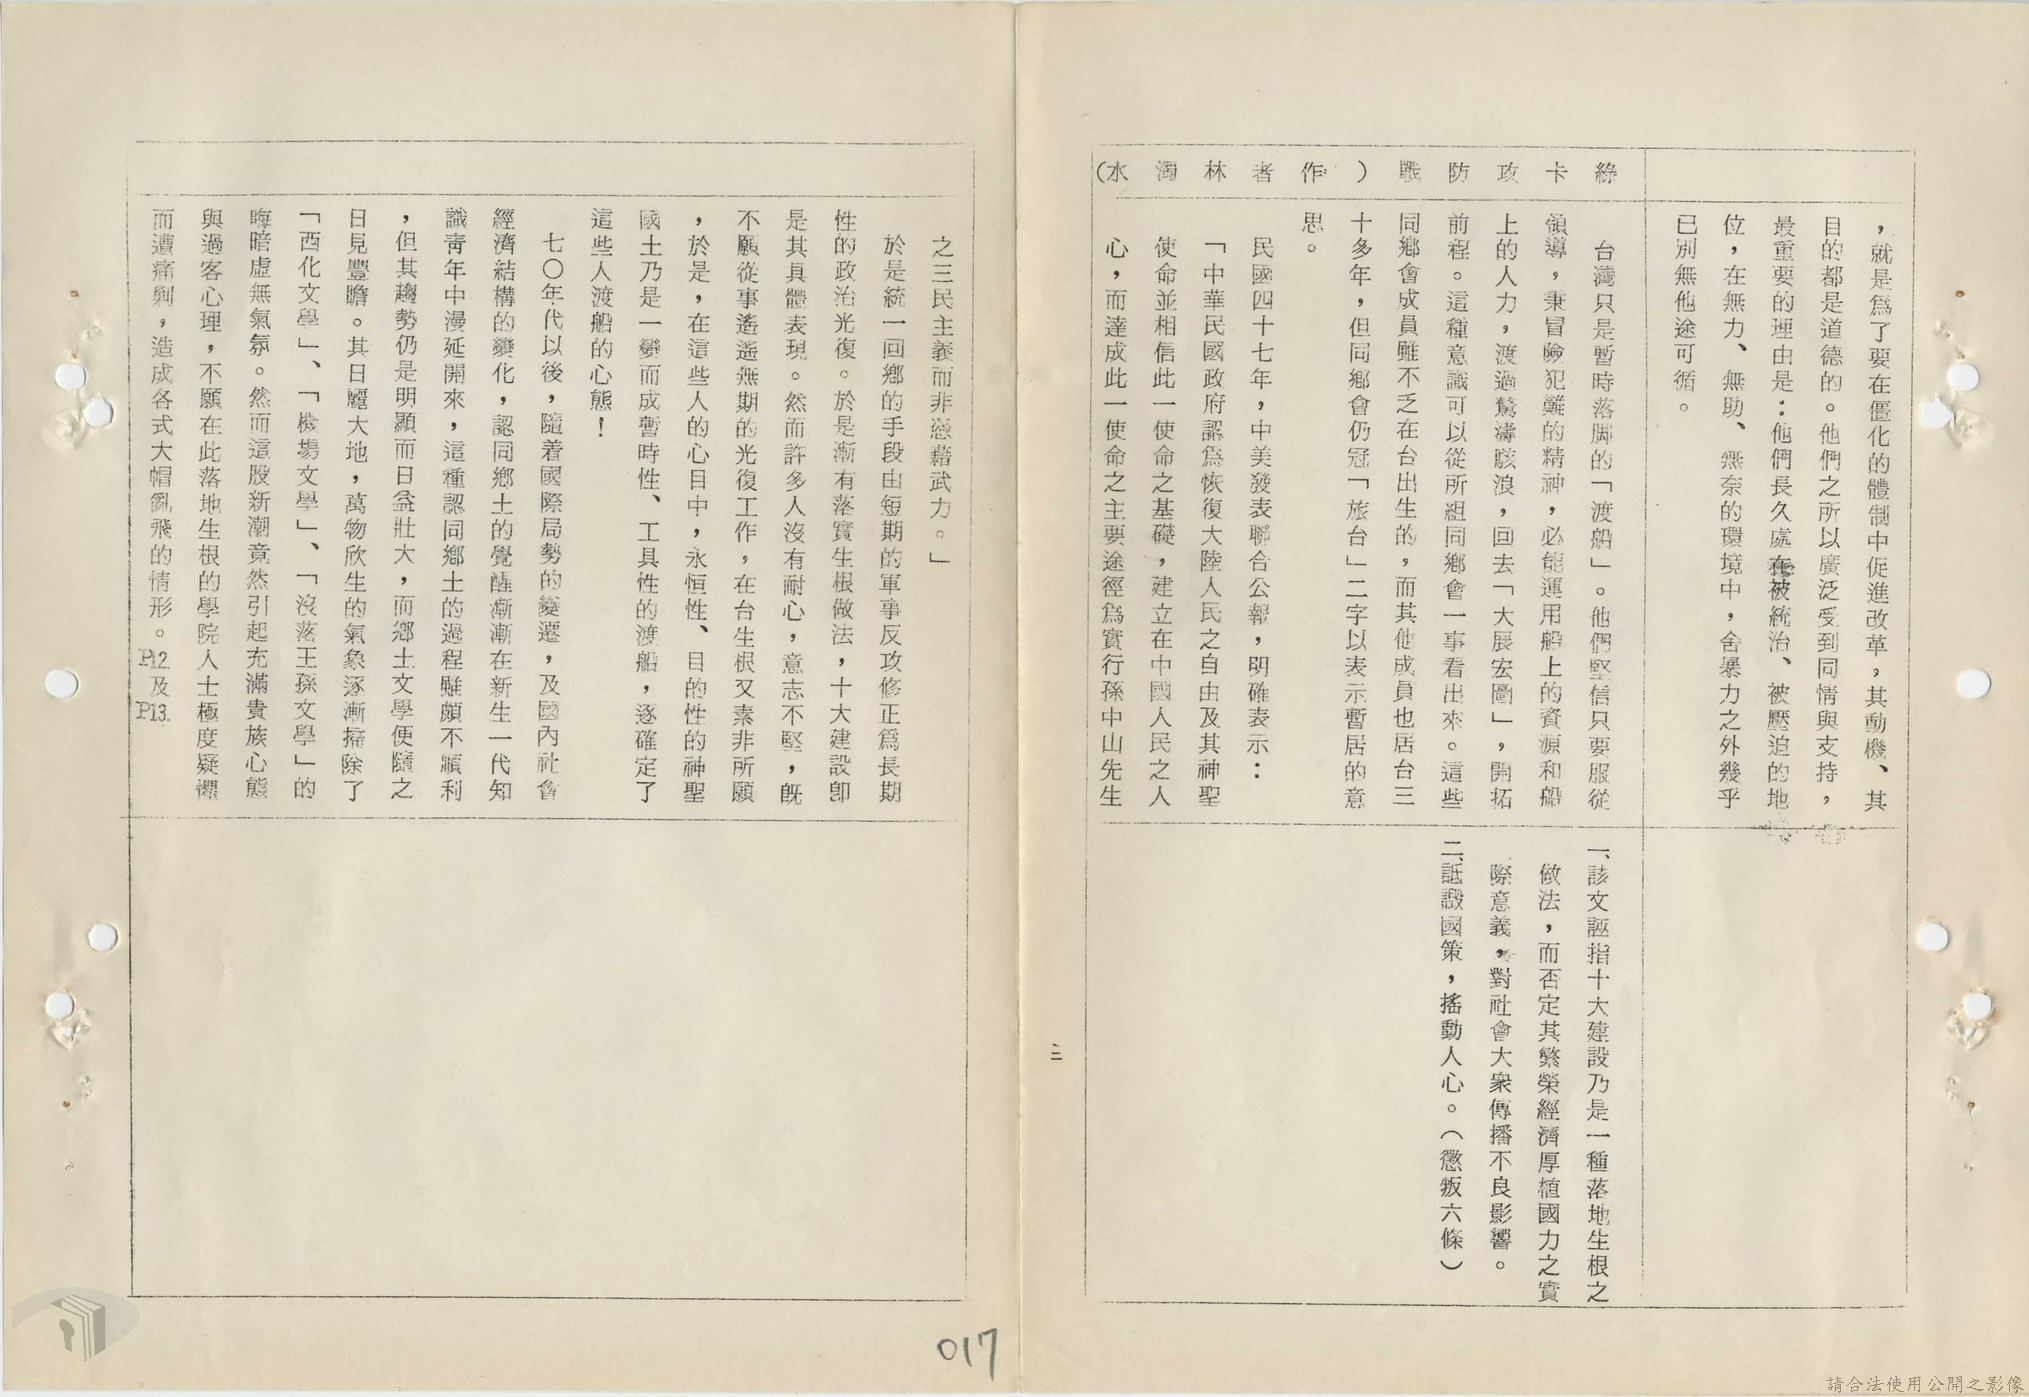 ，就是爲了要在僵化的體制中促進改革，其動機、其
目的都是道德的。他們之所以廣泛受到同情與支持，
最重要的理由是：他們長久處在被統治、被壓迫的地
位，在無力、無助、無奈的環境中，舍暴力之外幾乎
已別無他途可循。
綠卡攻防戰（作者林濁水）
台灣只是暫時落脚的「渡船」。他們堅信只要服從
領導，秉冒險犯難的精神，必能運用船上的資源和船
上的人力，渡過驚濤駭浪，回去「大展宏圖」，開拓
前程。這種意識可以從所組同鄉會一事看出來。這些
同鄉會成員雖不乏在台出生的，而其他成員也居台三
十多年，但同鄉會仍冠「旅台」二字以表示暫居的意
思。
民國四十七年，中美發表聯合公報，明確表示：
「中華民國政府認爲恢復大陸人民之自由及其神聖
使命並相信此一使命之基礎，建立在中國人民之人
心，而達成此一使命之主要途徑爲實行孫中山先生
一、該文誣指十大建設乃是一種落地生根之
做法，而否定其繁榮經濟厚植國力之實
際意義，對社會大衆傳播不良影響。
二、詆譭國策，搖動人心。（懲叛六條）
二
之三民主義而非憑藉武力。」
於是統一回鄉的手段由短期的軍事反攻修正爲長期
性的政治光復。於是漸有落實生根做法，十大建設卽
是其具體表現。然而許多人沒有耐心，意志不堅，旣
不願從事遙遙無期的光復工作，在台生根又素非所願
，於是，在這些人的心目中，永恒性、目的性的神聖
國土乃是一變而成暫時性、工具性的渡船，逐確定了
這些人渡船的心態！
七〇年代以後，隨着國際局勢的變遷，及國內社會
經濟結構的變化，認同鄉土的覺醒漸漸在新生一代知
識青年中漫延開來，這種認同鄉土的過程雖頗不順利
，但其趨勢仍是明顯而日益壯大，而鄉土文學便隨之
日見豐瞻。其日麗大地，萬物欣生的氣象逐漸掃除了
「西化文學」、「機場文學」、「沒落王孫文學」的
晦暗虛無氣氛。然而這股新潮竟然引起充滿貴族心態
與過客心理，不願在此落地生根的學院人士極度疑懼
而遭痛剿，造成各式大帽亂飛的情形。P12.及P13.
017
請合法使用公開之影像